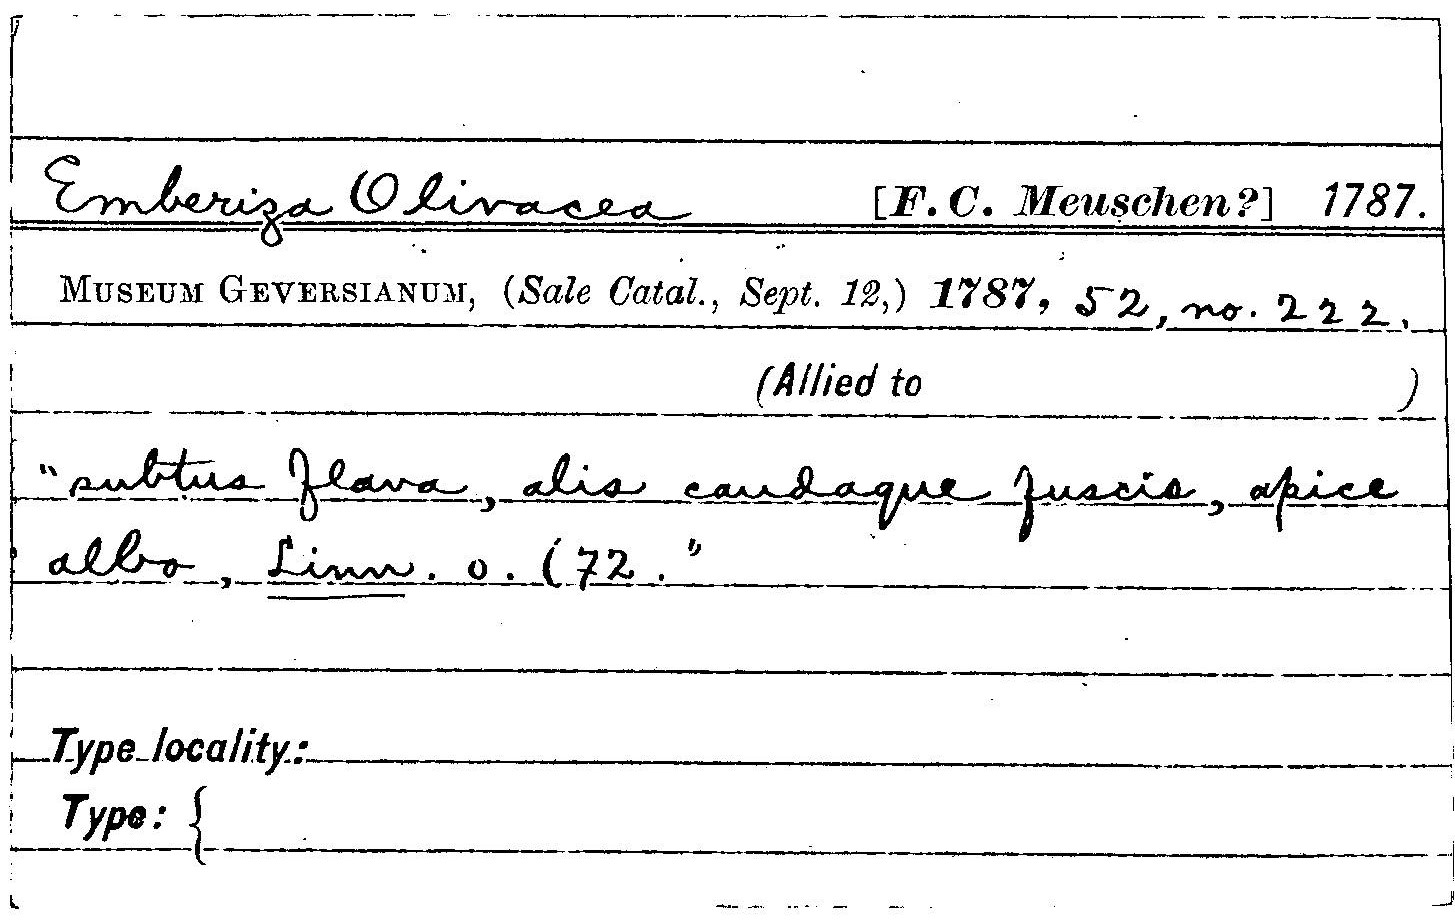 Emberiza Olivacea [F. C. Meuschen?] 1787.
MUSEUM GEVERSIANUM, (Sale Catal., Sept. 12,) 1787, 52, no. 222.
(Allied to )
"subtus flava, alis caudaque fuscis, apice
albo, Linn. o. (72."
Type locality:
Type: {